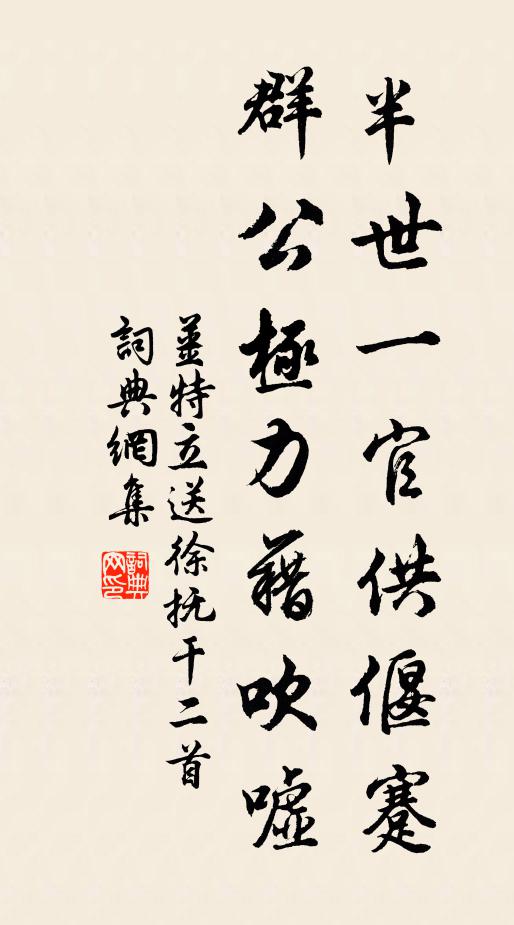 半世一官供偃蹇
群公極力藉吹噓
姜特立送徐抚干二首
詞典網集
詞典網印